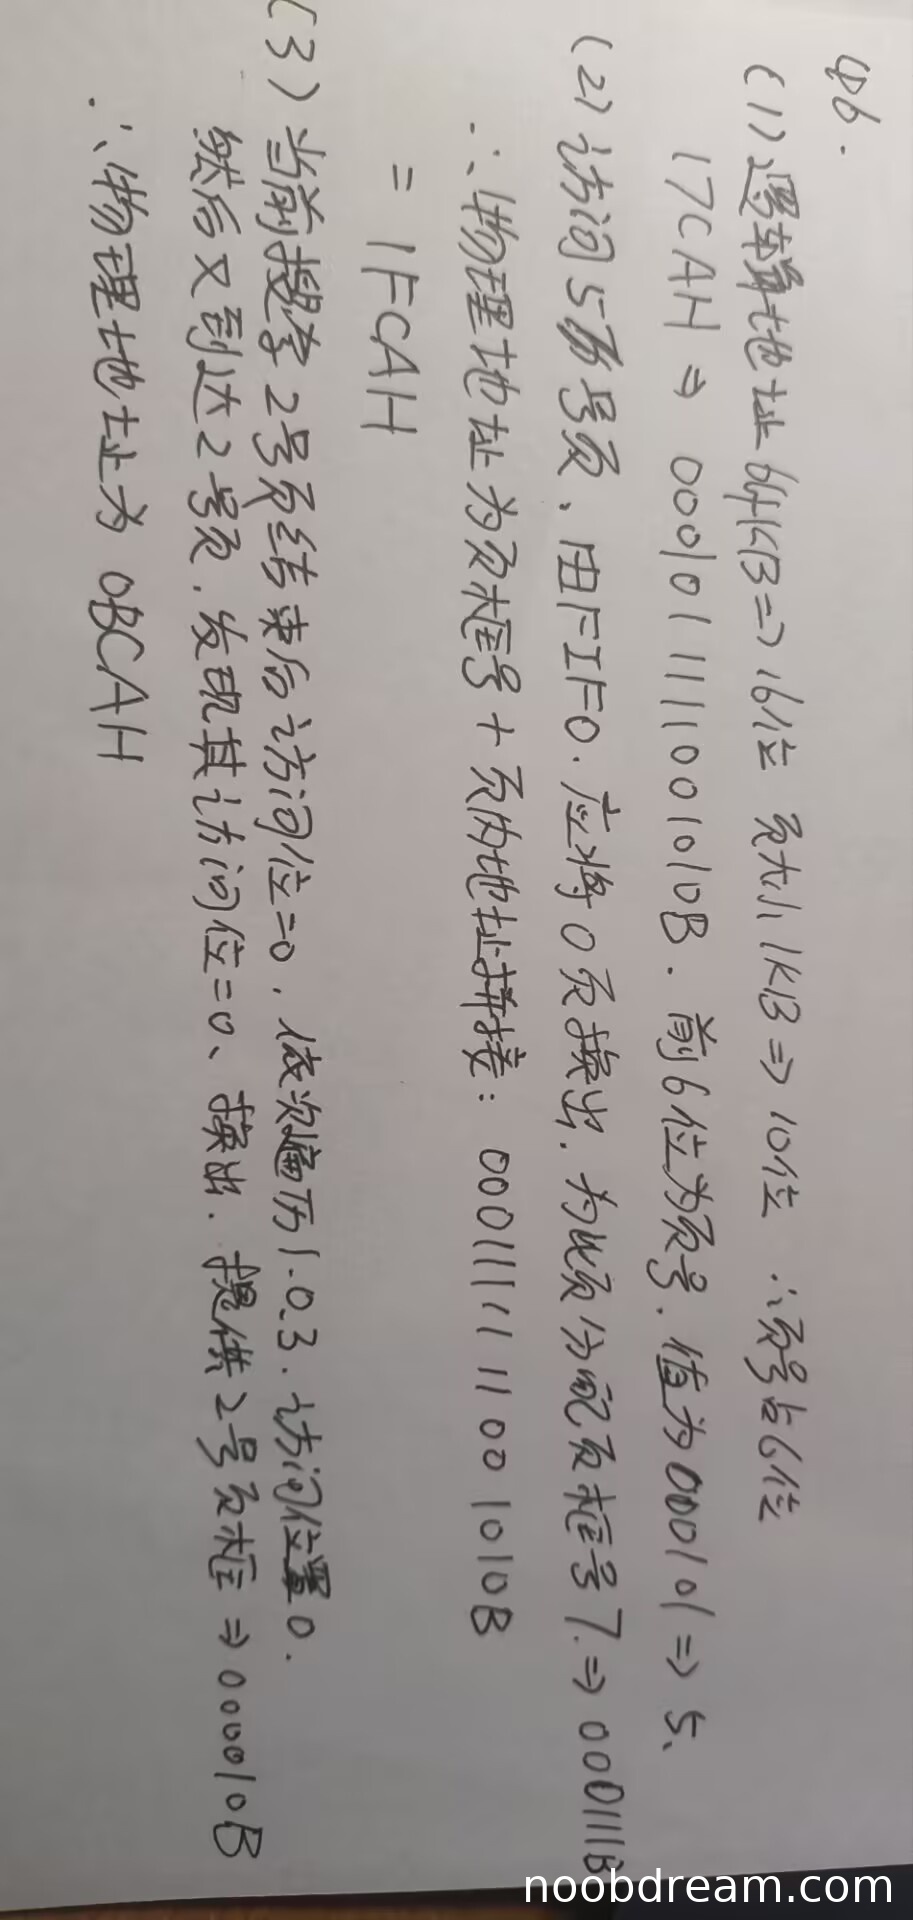 46.
(1) 逻辑地址64KB⇒16位 页大小1KB⇒10位 ∴页号占6位
17CAH ⇒ 0001011111001010B. 前6位为页号. 值为000101⇒5.
(2) 访问5号页、由FIFO.应将0页换出.为此页分配页框号7.⇒000111B
∴物理地址为页框号+页内地址拼接: 0001111111001010B
= 1FCAH
(3) 当前搜索2号页结束后访问位=0. 依次遍历1.0.3.访问位置0.
然后又到达2号页.发现其访问位=0、换出.提供2号页框⇒000010B
∴物理地址为 0BCAH
noobdream.com